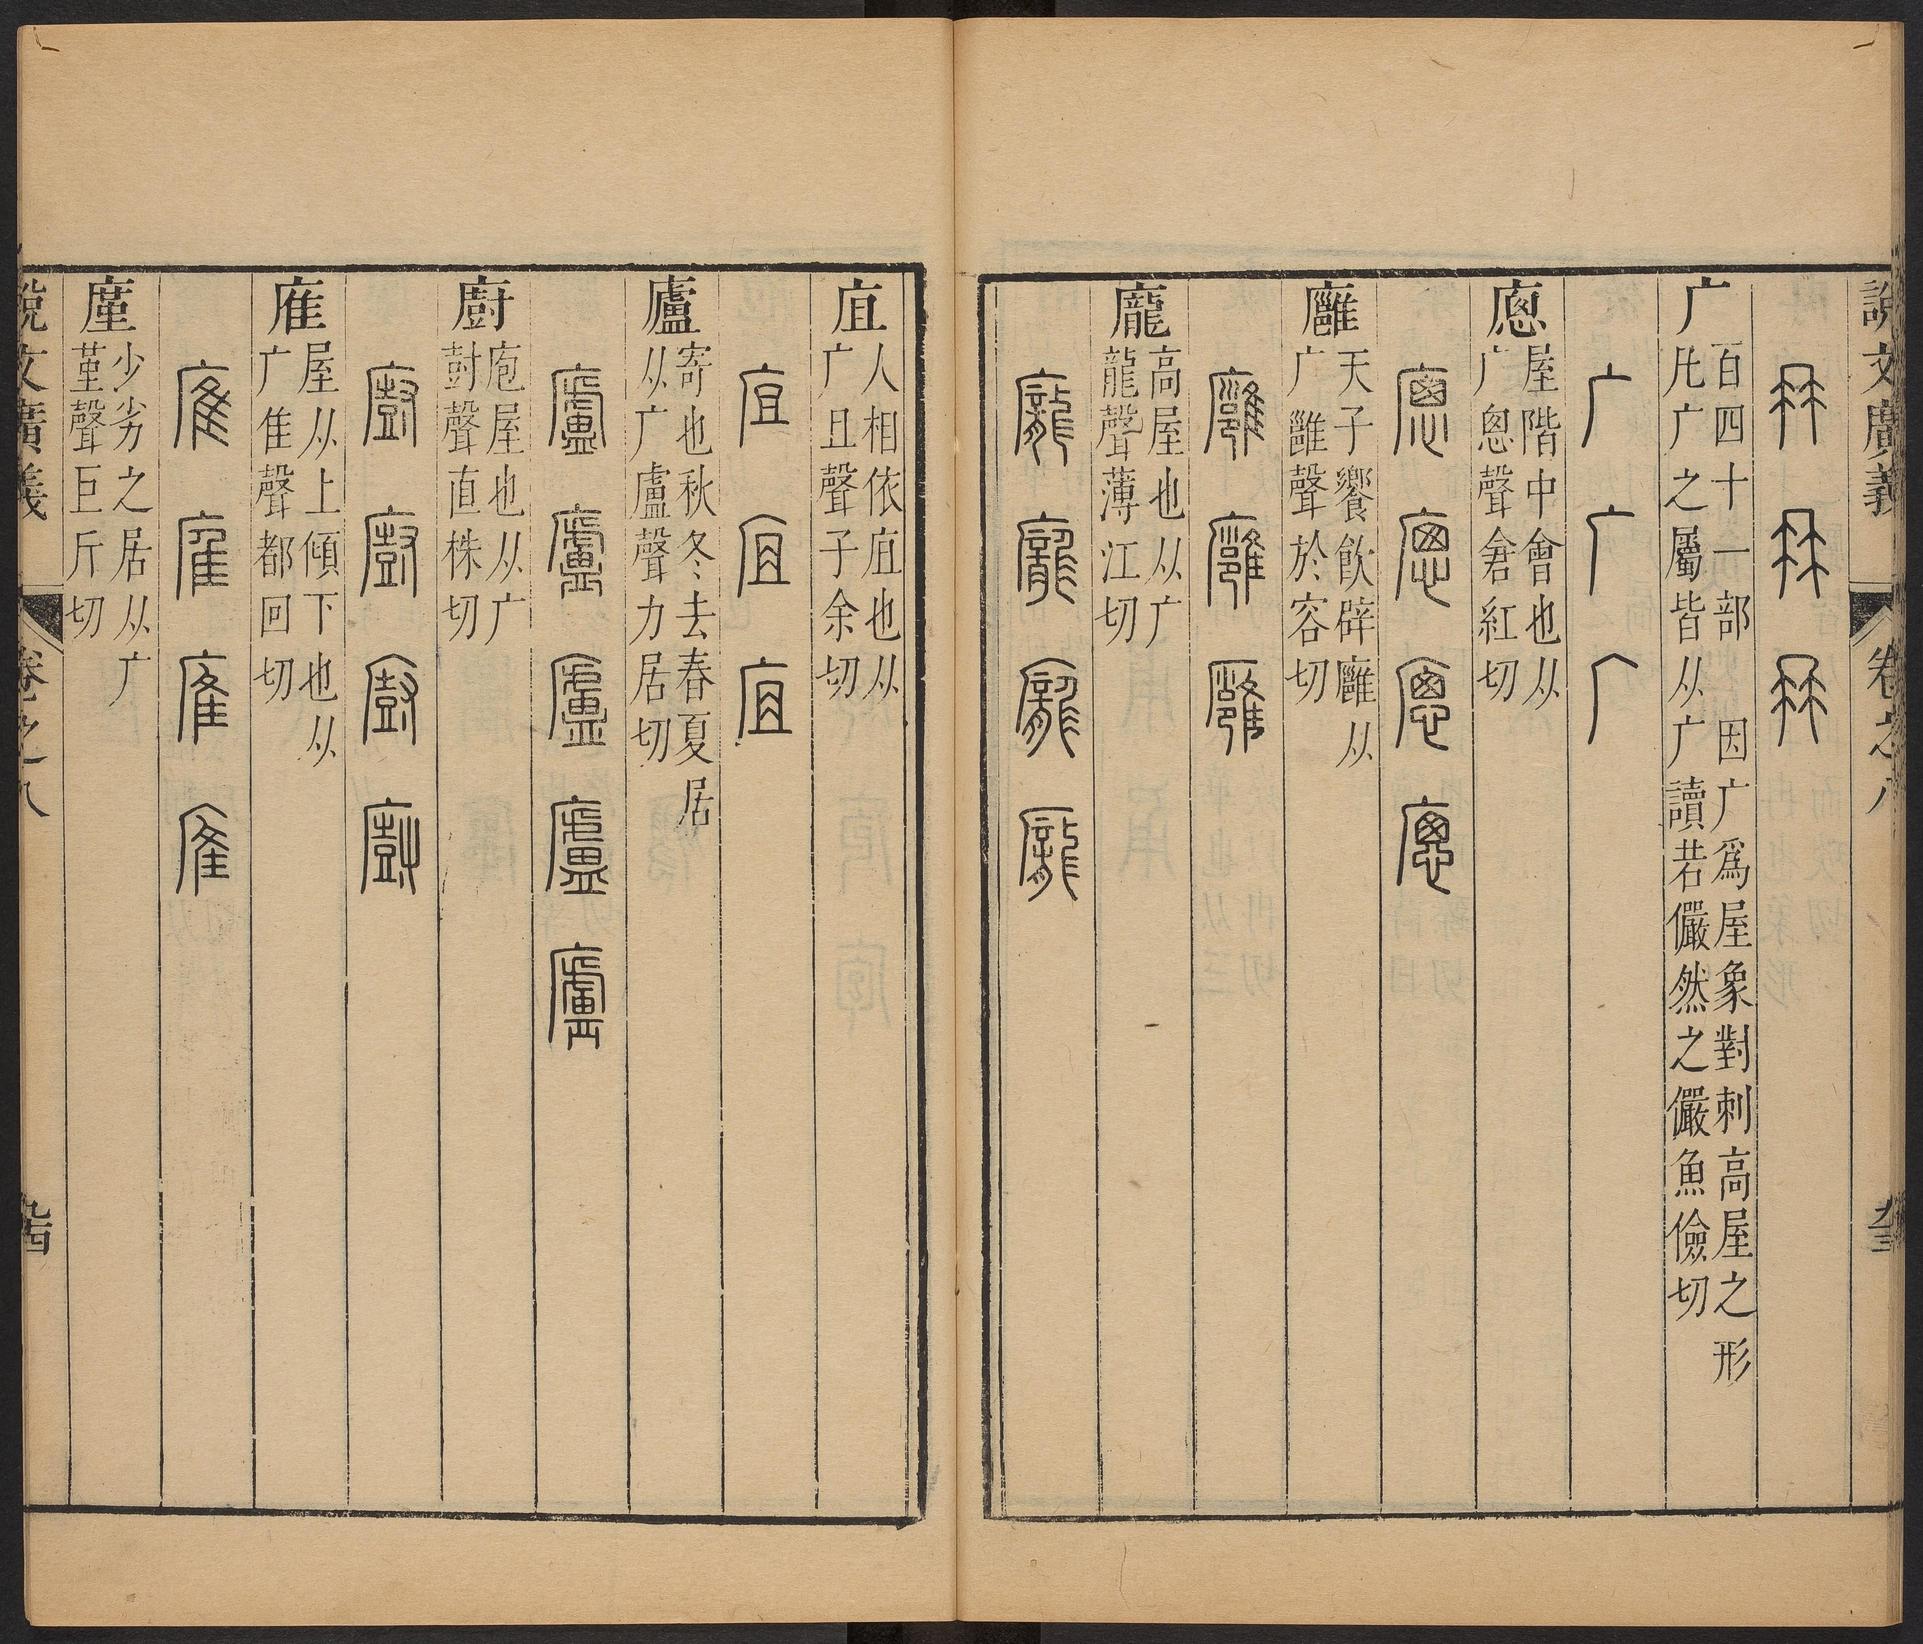 說文廣義
卷之八
九十三
广
百四十一部 因广爲屋象對刺高屋之形
凡广之屬皆从广讀若儼然之儼魚儉切
广 广 广
廖
屋階中會也从
广悤聲倉紅切
廱
天子饗飲辟廱从
广雝聲於容切
廱 廱 廱
龐
高屋也从广
龍聲薄江切
龐 龐 龐 龐
㡹
人相依㡹也从
广且聲子余切
㡹 㡹 㡹
廬
寄也秋冬去春夏居
从广盧聲力居切
廬 廬 廬 廬 廬
廚
庖屋也从广
尌聲直株切
廚 廚 廚 廚
㢈
屋从上傾下也从
广隹聲都回切
㢈 㢈 㢈 㢈
廑
少劣之居从广
堇聲巨斤切
說文廣義
卷之八
九十四